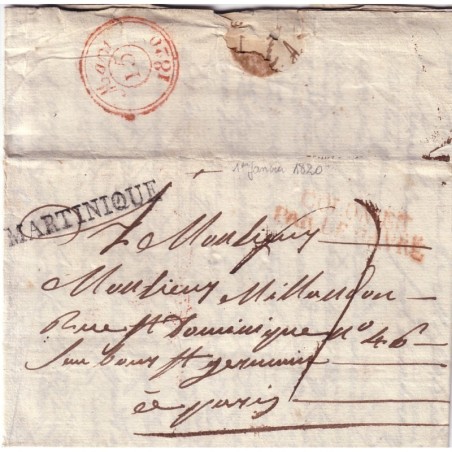 1820
15
1er janvier 1820
MARTINIQUE
PAR LE HAVRE
A Monsieur
Monsieur Millancon
Rue St Dominique no 46
faubour st germain
à paris